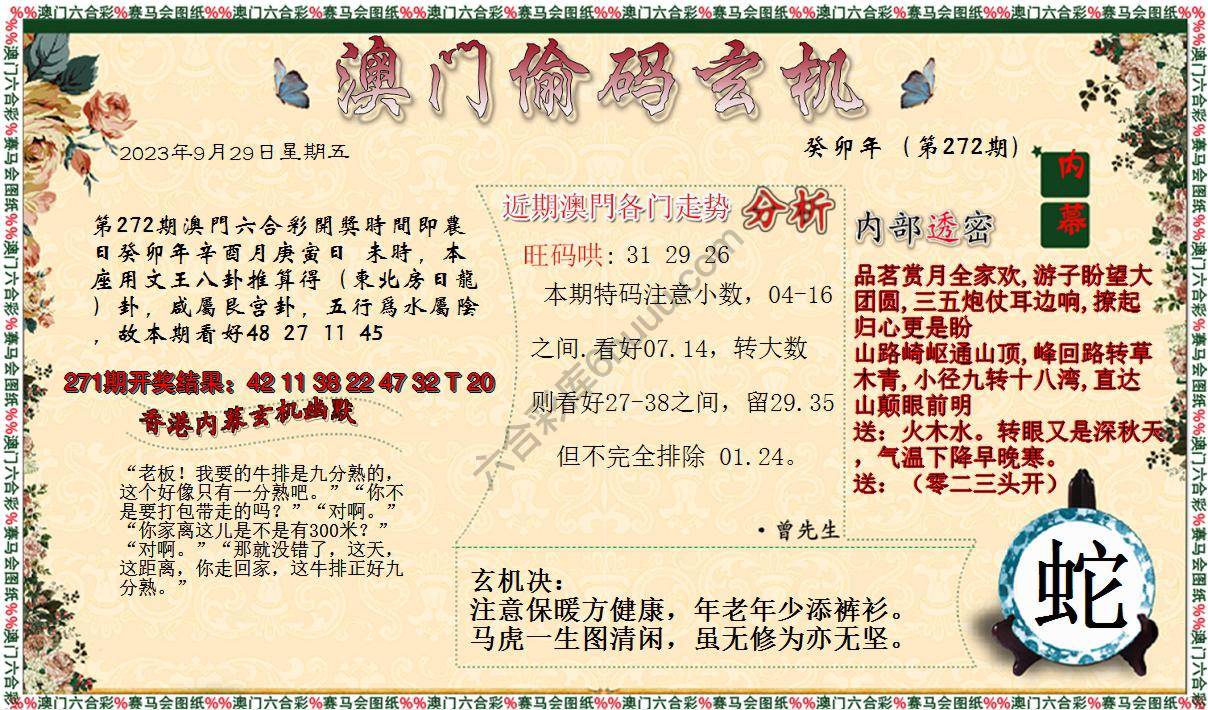 %%澳门六合彩%赛马会图纸%%澳门六合彩%赛马会图纸%%澳门六合彩%赛马会图纸%%
澳门偷码玄机
2023年9月29日星期五
癸卯年（第272期）
内
幕
第272期澳門六合彩開獎時間即農
日癸卯年辛酉月庚寅日 未時，本
座用文王八卦推算得（東北房日龍
）卦，咸屬艮宫卦，五行爲水屬陰
，故本期看好48 27 11 45
271期开奖结果：42 11 38 22 47 32 T 20
香港内幕玄机幽默
“老板！我要的牛排是九分熟的，
这个好像只有一分熟吧。”“你不
是要打包带走的吗？”“对啊。”
“你家离这儿是不是有300米？”
“对啊。”“那就没错了，这天，
这距离，你走回家，这牛排正好九
分熟。”
近期澳門各门走势 分析
旺码哄: 31 29 26
本期特码注意小数，04-16
之间.看好07.14，转大数
则看好27-38之间，留29.35
但不完全排除 01.24。
·曾先生
内部透密
品茗赏月全家欢,游子盼望大
团圆,三五炮仗耳边响,撩起
归心更是盼
山路崎岖通山顶,峰回路转草
木青,小径九转十八湾,直达
山颠眼前明
送：火木水。转眼又是深秋天
，气温下降早晚寒。
送：（零二三头开）
玄机决：
注意保暖方健康，年老年少添裤衫。
马虎一生图清闲，虽无修为亦无坚。
蛇